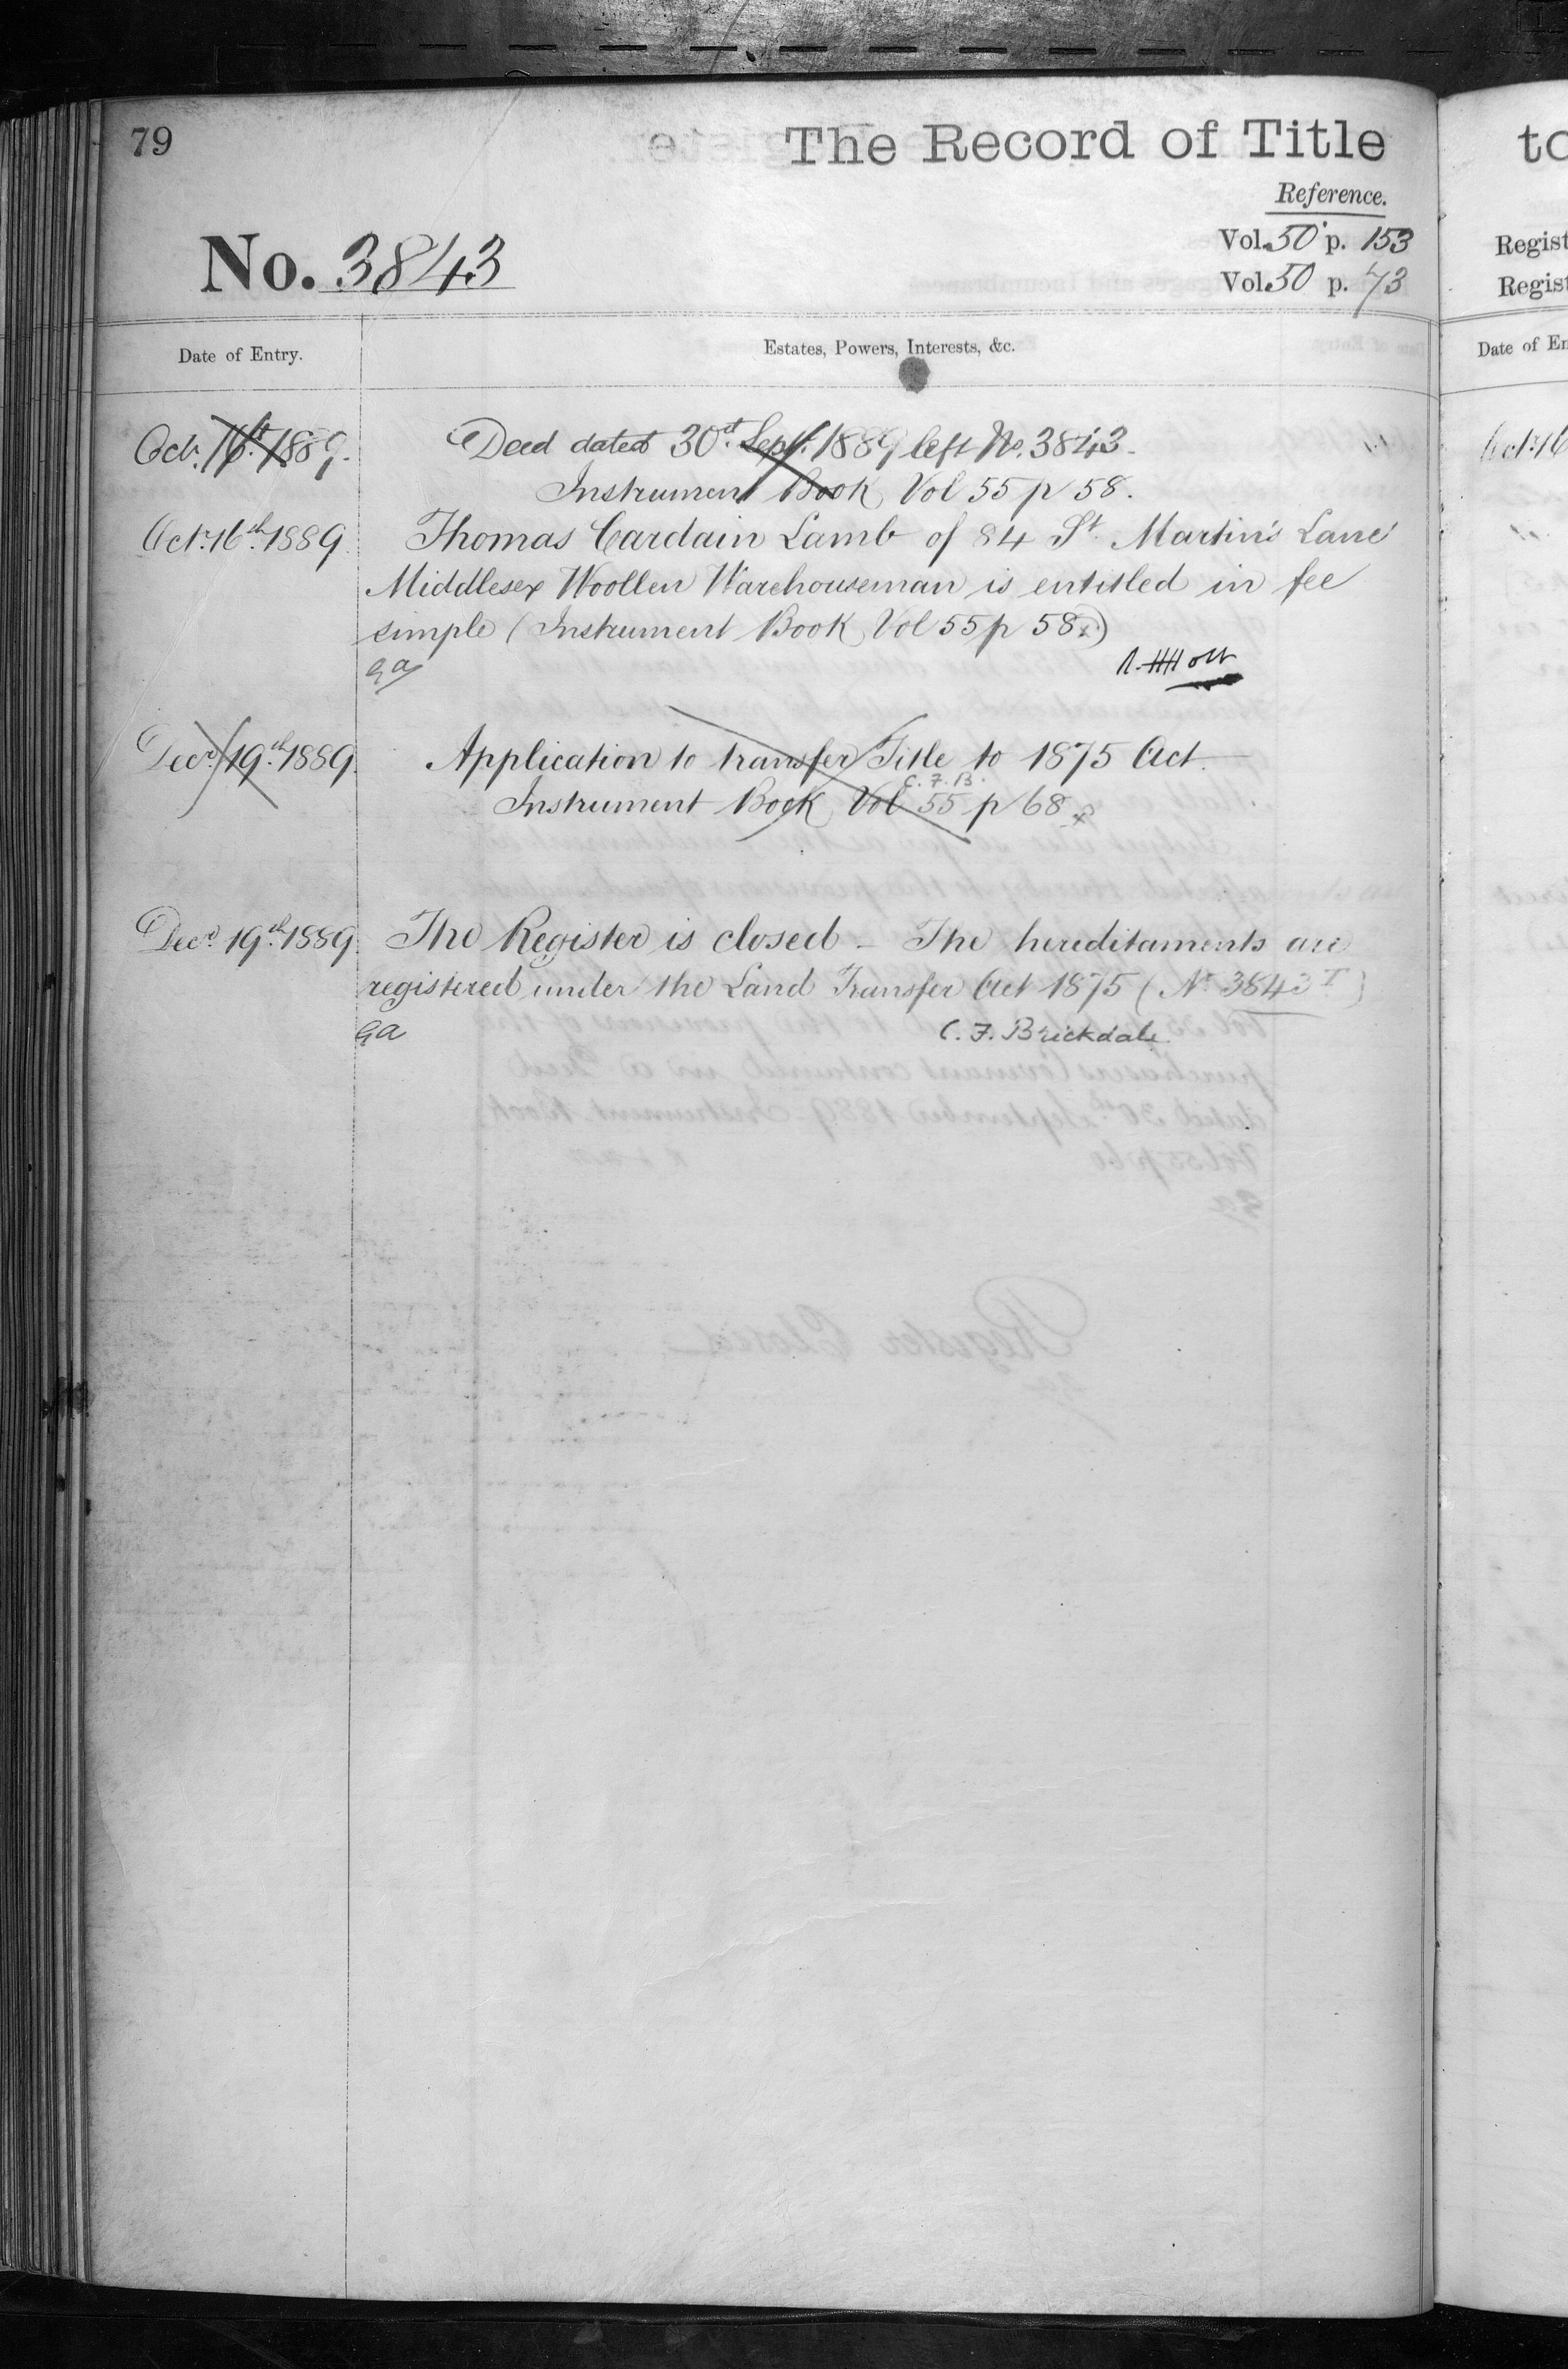 79
The Record of Title
Reference.
Vol. 50 p. 153
No. 3843
Vol. 50 p. 73
Date of Entry.
Estates, Powers, Interests, &c.
Oct. 16th 1889. Deed dated 30th Sept. 1889 left No. 3843.
Instrument Book Vol 55 p 58.
Oct. 16th 1889 Thomas Cardain Lamb of 84 St. Martin's Lane
Middlesex Woollen Warehouseman is entitled in fee
simple (Instrument Book Vol 55 p 58 x)
Decr. 19th 1889 Application to transfer Title to 1875 Act.
C. F. B.
Instrument Book Vol 55 p 68 x
Decr. 19th 1889 The Register is closed - The hereditaments are
registered under the Land Transfer Act 1875 (No. 3843 T)
C. F. Brickdale
to
Regist
Regist
Date of En
Oct. 16